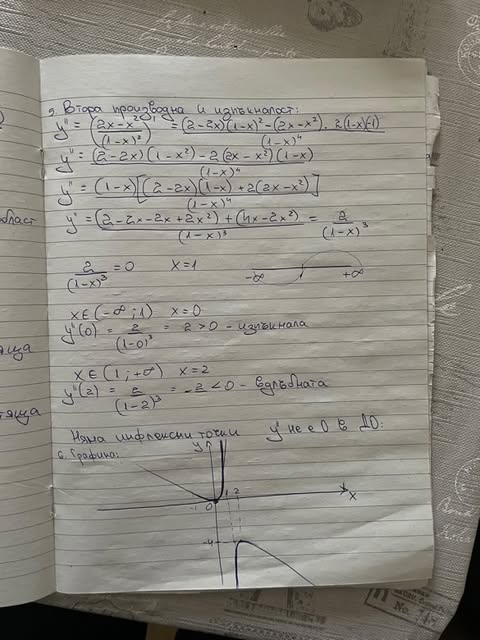 5. Втора производна и изпъкналост:
y'' = (2x-x²/(1-x)²)' = (2-2x)(1-x)²-(2x-x²).2(1-x)(-1)/(1-x)⁴
y'' = (2-2x)(1-x²)-2(2x-x²)(1-x)/(1-x)⁴
y'' = (1-x)[(2-2x)(1-x)+2(2x-x²)]/(1-x)⁴
y'' = (2-2x-2x+2x²)+(4x-2x²)/(1-x)³ = 2/(1-x)³
2/(1-x)³ = 0 x=1 -∞ +∞
x∈(-∞;1) x=0
y''(0) = 2/(1-0)³ = 2>0 - изпъкнала
x∈(1;+∞) x=2
y''(2) = 2/(1-2)³ = -2<0 - вдлъбната
Няма инфлексни точки y' не е 0 в ДО:
6. Графика:
y
-1 0 1 2 x
-4